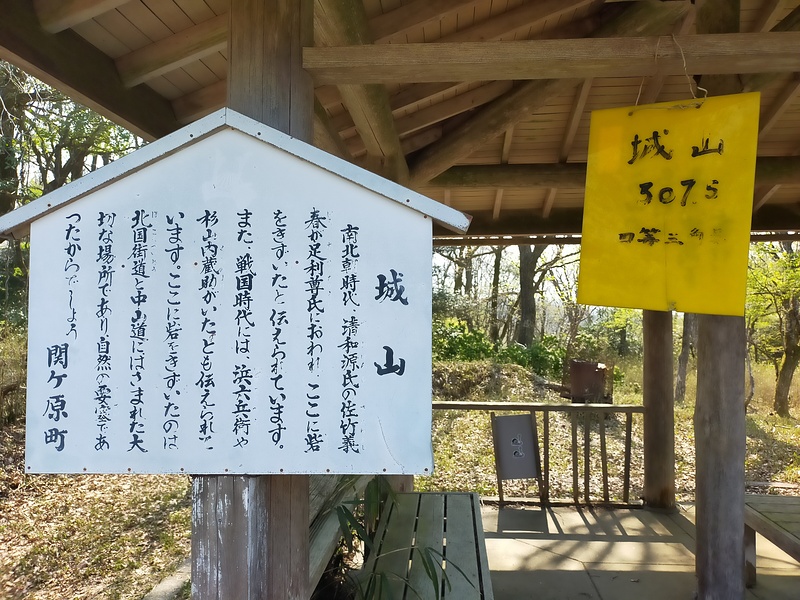 城山
南北朝時代、清和源氏の佐竹義
春が足利尊氏におわれ、ここに砦
をきずいたと伝えられています。
また、戦国時代には、浜六兵衛や
杉山内蔵助がいたとも伝えられて
います。ここに砦をきずいたのは
北国街道と中山道にはさまれた大
切な場所であり、自然の要塞であ
ったからでしょう
関ケ原町
城山
307.5
四等三角